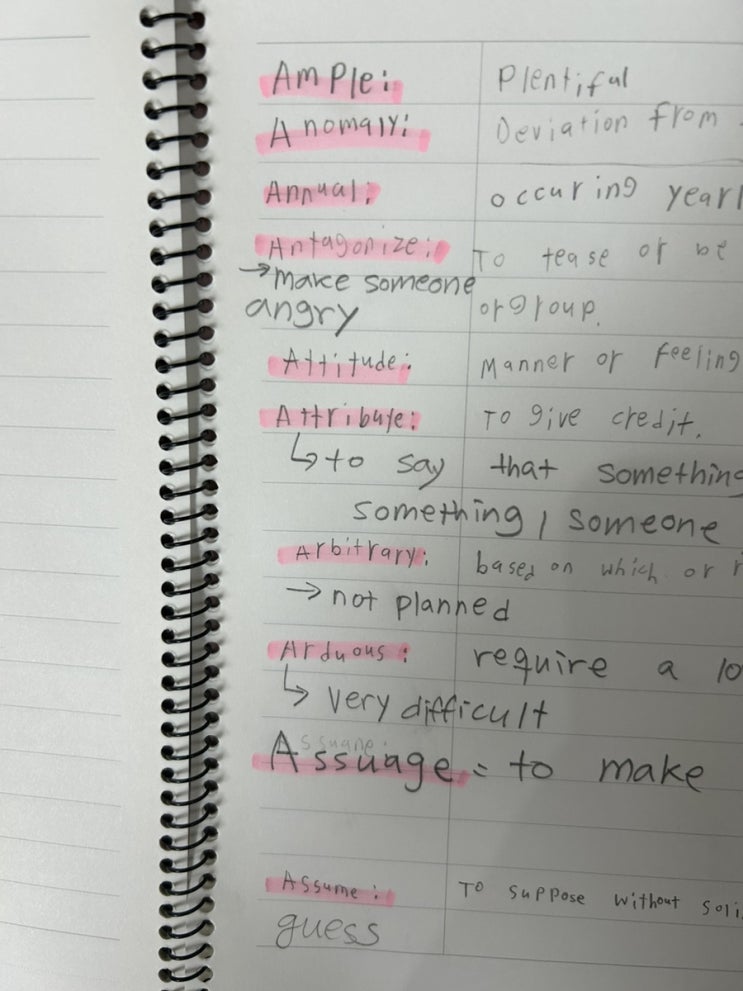 Ample: Plentiful
Anomaly: Deviation from
Annual: occuring yearl
Antagonize: To tease or be
→ make someone
angry orgroup.
Attitude: Manner or feeling
Attribute: To give credit.
↳ to say that something
something, someone
Arbitrary: based on which or
→ not planned
Arduous: require a lo
↳ very difficult
Assuage: to make
Assume: To suppose without soli
guess